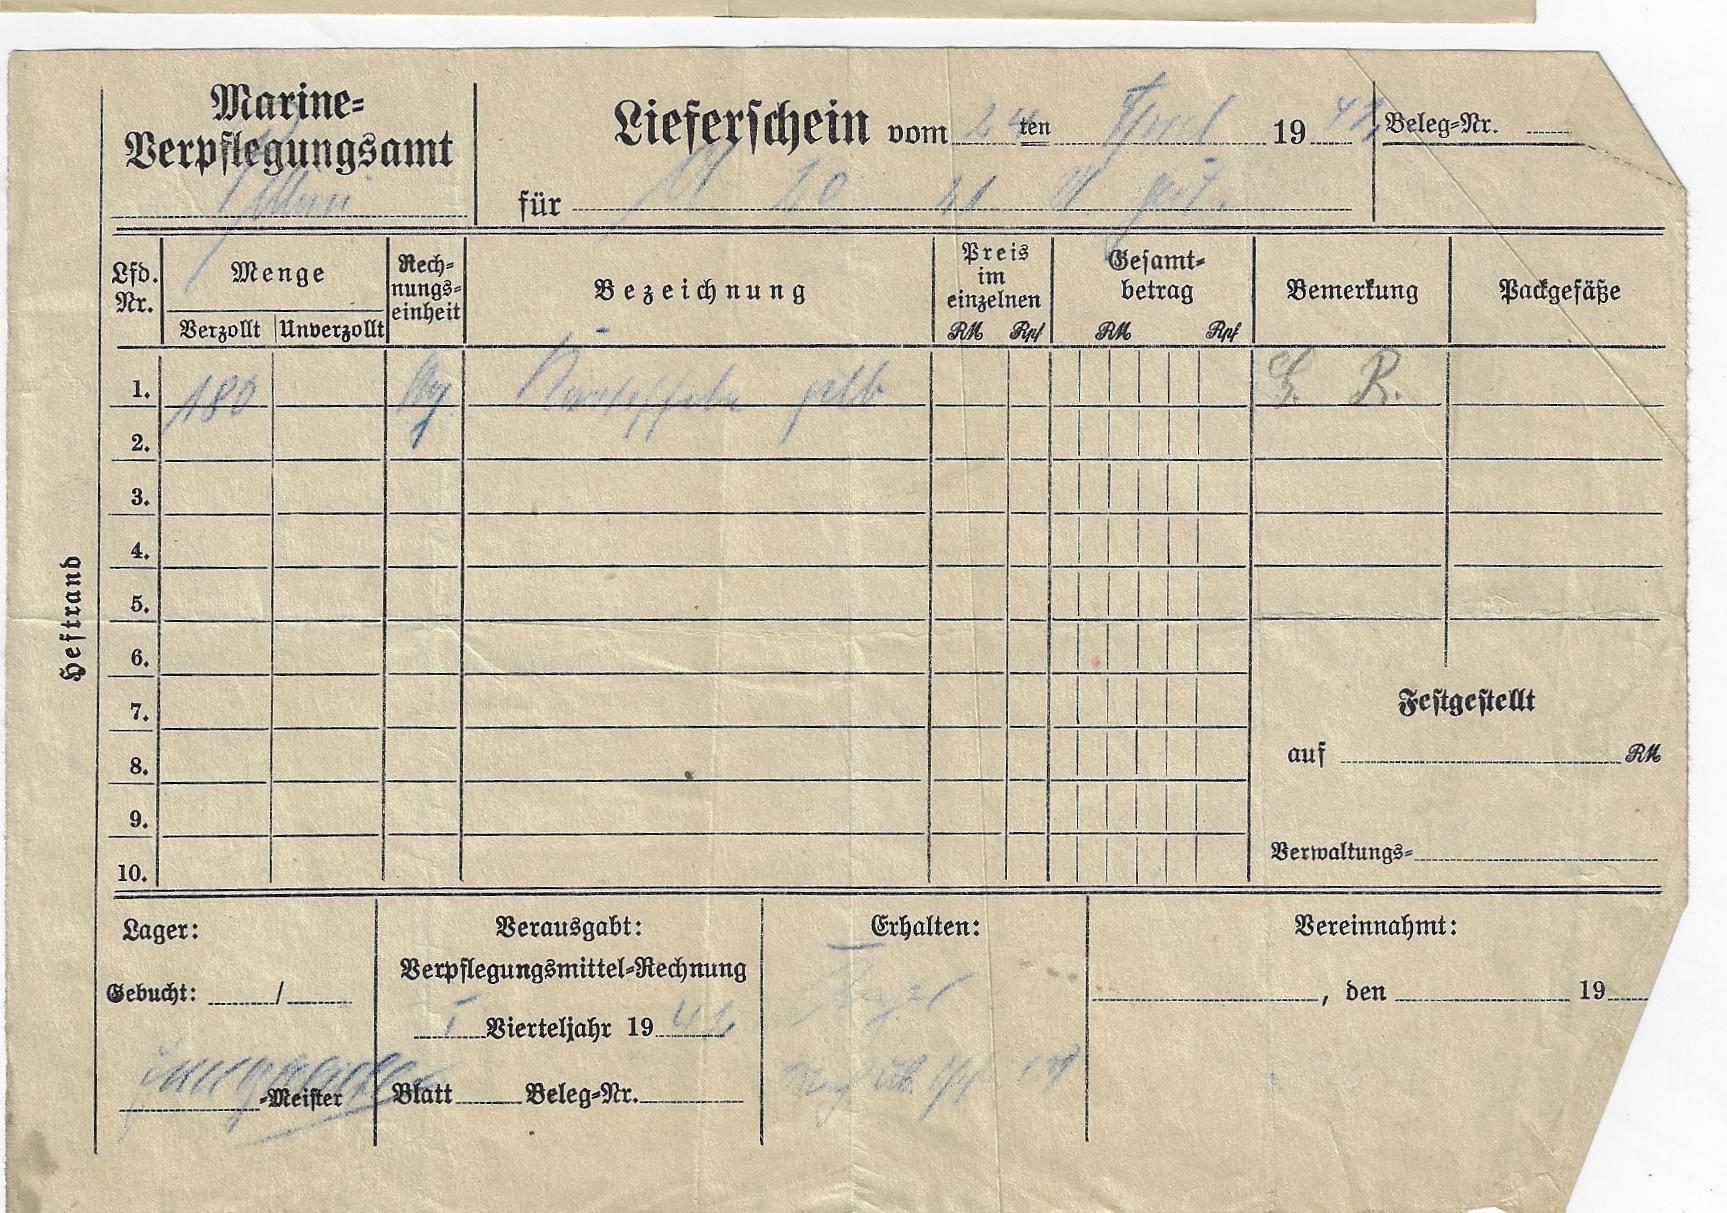 Marine-
Verpflegungsamt
Lieferschein vom 24 ten April 19 42
Beleg-Nr.
für
Lfd. Nr.
Menge
Verzollt Unverzollt
Rech-
nungs-
einheit
Bezeichnung
Preis
im
einzelnen
RM Rpf
Gesamt-
betrag
RM Rpf
Bemerkung
Packgefäße
1. 180 Kg Kartoffeln gelb G. R.
2.
3.
4.
5.
6.
7.
8.
9.
10.
Heftrand
Festgestellt
auf RM
Verwaltungs-
Lager:
Gebucht: /
-Meister
Verausgabt:
Verpflegungsmittel-Rechnung
I Vierteljahr 19 42
Blatt Beleg-Nr.
Erhalten:
Vereinnahmt:
, den 19